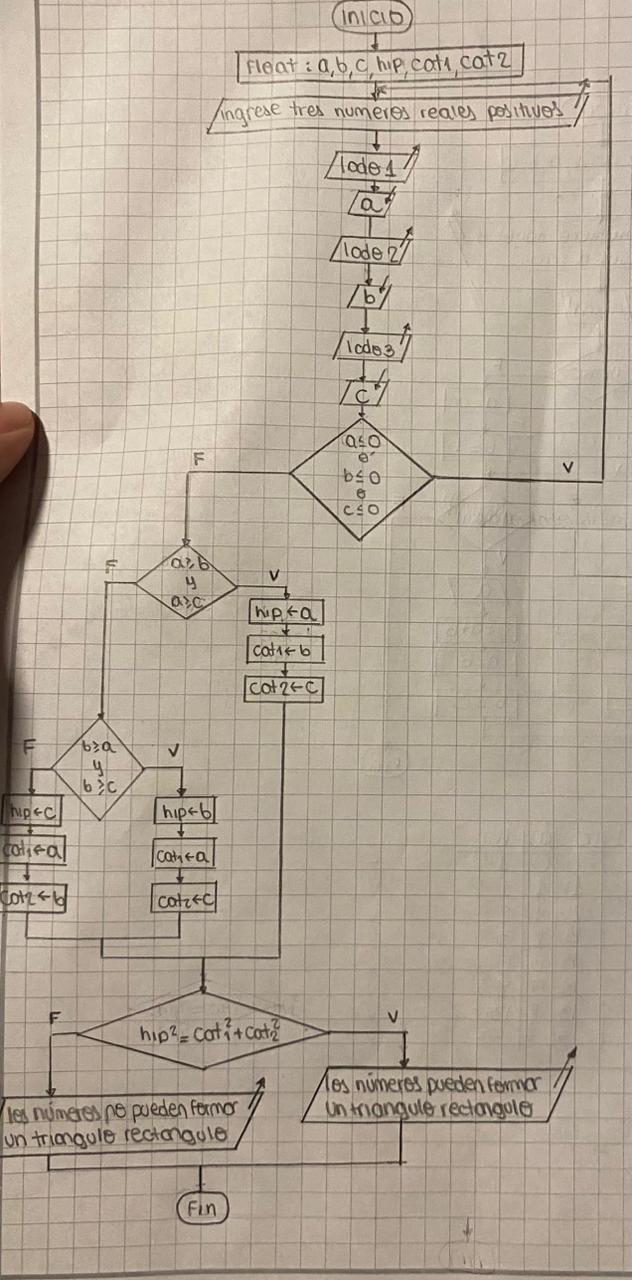 Inicio
Float : a, b, c, hip, cat1, cat2
ingrese tres numeros reales positivos
lado 1
a
lado 2
b
lado 3
c
a≤0
o
b≤0
o
c≤0
F
V
a≥b
y
a≥c
F
V
hip←a
cat1←b
cat2←c
b≥a
y
b≥c
F
V
hip←c
cat1←a
cat2←b
hip←b
cat1←a
cat2←c
hip² = cat₁² + cat₂²
F
V
los números no pueden formar
un triangulo rectangulo
los números pueden formar
un triangulo rectangulo
Fin